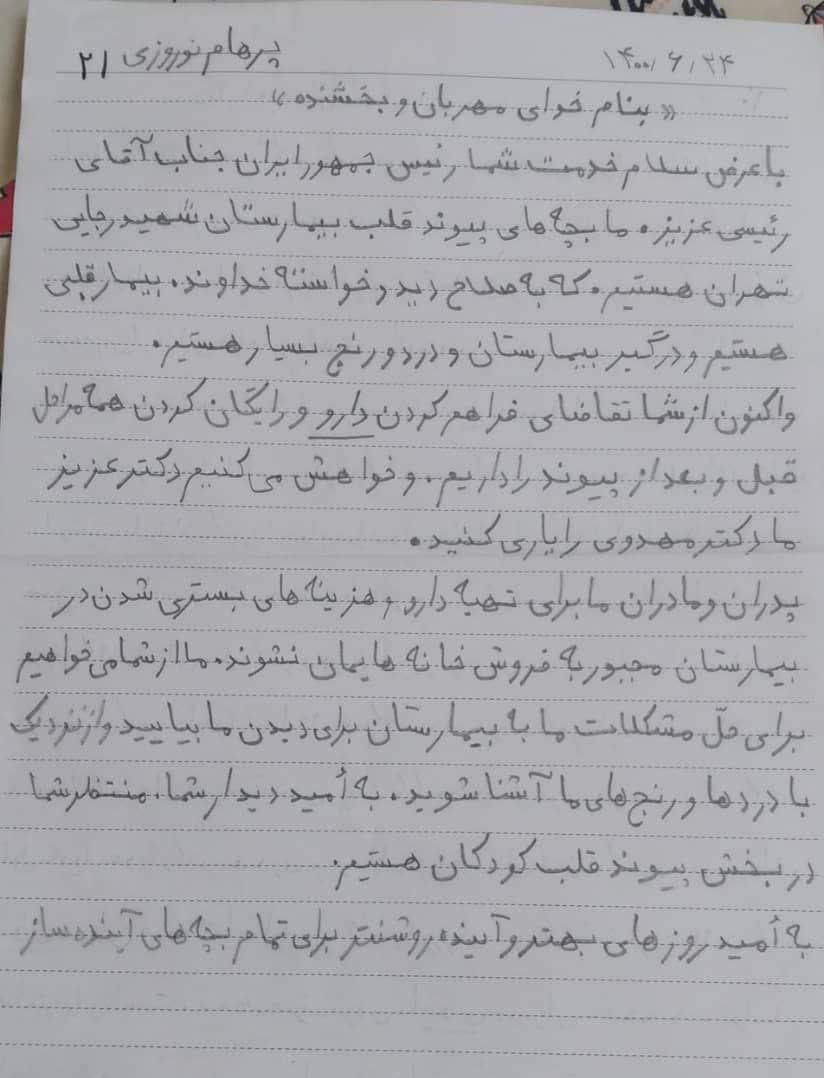 ۱۴۰۰/۶/۲۴ پرهام نوروزی ۲۱
« بنام خدای مهربان و بخشنده »
با عرض سلام خدمت شما رئیس جمهور ایران جناب آقای
رئیسی عزیز. ما بچه های پیوند قلب بیمارستان شهید رجایی
تهران هستیم. که به صلاح دید و خواسته خداوند، بیمار قلبی
هستیم و درگیر بیمارستان و درد و رنج بسیار هستیم.
واکنون از شما تقاضای فراهم کردن دارو و رایگان کردن همه مراحل
قبل و بعد از پیوند را داریم. و خواهش می کنیم دکتر عزیز
ما دکتر مهدوی را یاری کنید.
پدران و مادران ما برای تهیه دارو و هزینه های بستری شدن در
بیمارستان مجبور به فروش خانه هایمان نشوند. ما از شما می خواهیم
برای حلّ مشکلات ما به بیمارستان برای دیدن ما بیایید و از نزدیک
با دردها و رنج های ما آشنا شوید. به اُمید دیدار شما. منتظر شما
در بخش پیوند قلب کودکان هستیم.
به اُمید روزهای بهتر و آینده روشنتر برای تمام بچه های آینده ساز